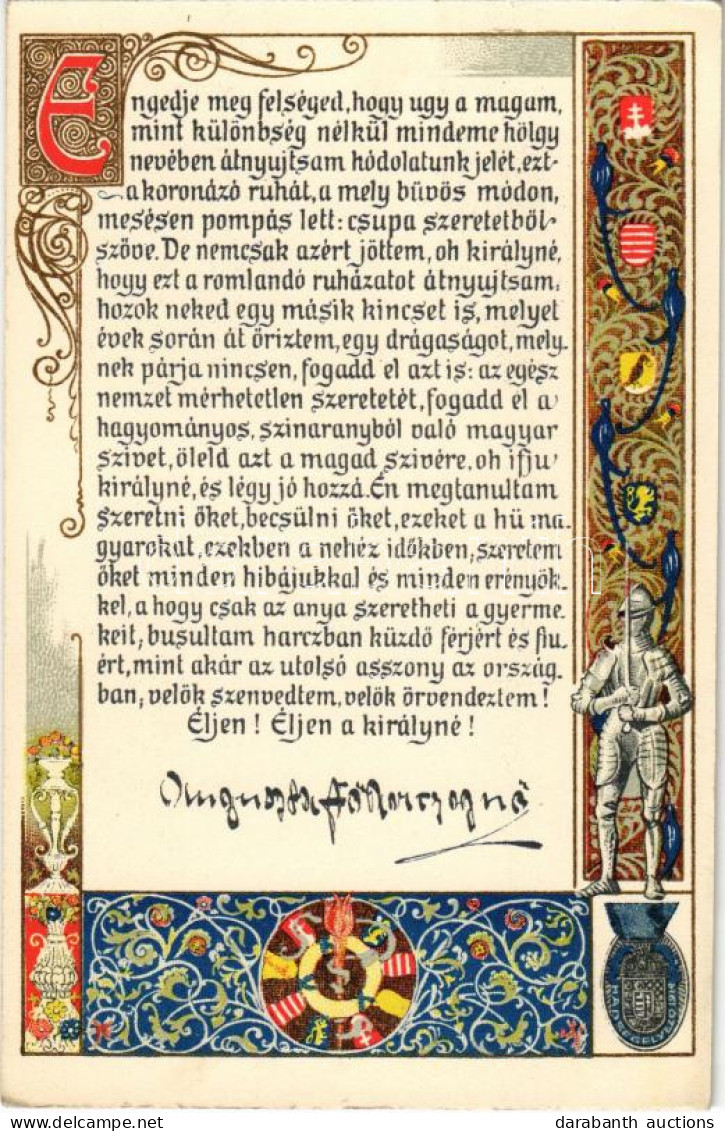 Engedje meg felséged, hogy ugy a magam,
mint különbség nélkül mindeme hölgy
nevében átnyujtsam hódolatunk jelét, ezt
a koronázó ruhát, a mely büvös módon,
mesésen pompás lett: csupa szeretetböl
szőve. De nemcsak azért jöttem, oh királyné,
hogy ezt a romlandó ruházatot átnyujtsam:
hozok neked egy másik kincset is, melyet
évek során át őriztem, egy drágaságot, mely-
nek párja nincsen, fogadd el azt is: az egész
nemzet mérhetetlen szeretetét, fogadd el a
hagyományos, szinaranyból való magyar
szivet, öleld azt a magad szivére, oh ifju
királyné, és légy jó hozzá. Én megtanultam
szeretni őket, becsülni őket, ezeket a hü ma-
gyarokat, ezekben a nehéz időkben, szeretem
őket minden hibájukkal és minden erényök-
kel, a hogy csak az anya szeretheti a gyerme-
keit; busultam harczban küzdő férjért és fiu-
ért, mint akár az utolsó asszony az ország-
ban; velök szenvedtem, velök örvendeztem!
Éljen! Éljen a királyné!
Auguszta főherczegnő
HADSEGÉLYEZÉS
delcampe.net
darabanth auctions